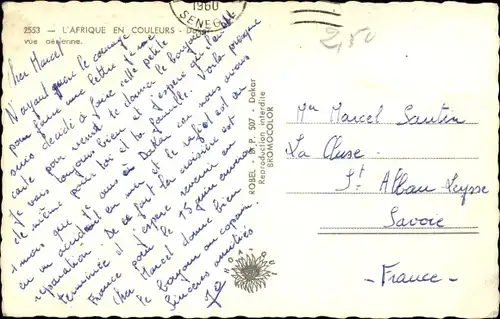 2553 — L'AFRIQUE EN COULEURS - Dakar
vue aérienne.
1960
SENEGAL
2,50
Cher Marcel
N'ayant guère le courage
pour faire une lettre je me
suis décidé à faire cette petite
carte pour venir te donner le bonjour
Je vais toujours bien et j'espère qu'il en est
de même pour toi et ta famille. Voilà presque
1 mois que je suis à Dakar car nous avons
eu un accident en mer et le refiot est en
réparation. De ce fait la croisière est
terminée et j'espère revenir en
France pour le 15 juin environ
Cher Marcel donne bien
le bonjour au copain.
Sincères amitiés
ROBEL - B.P. 507 - Dakar
Reproduction interdite
BROMOCOLOR
Mr Marcel Santin
La Cluse
St Alban Leysse
Savoie
- France -